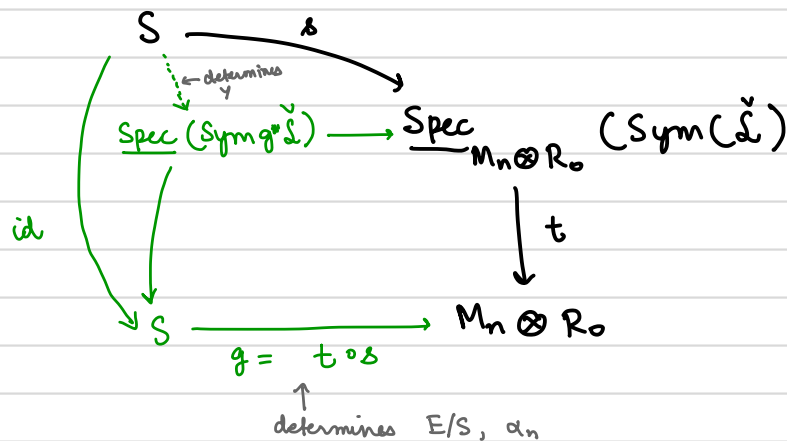 S
s
← determines
Y
Spec (Sym g*ℒ̌) → Spec_{Mₙ⊗R₀} (Sym(ℒ̌))
id
t
S
Mₙ ⊗ R₀
g = t∘s
determines E/S, αₙ